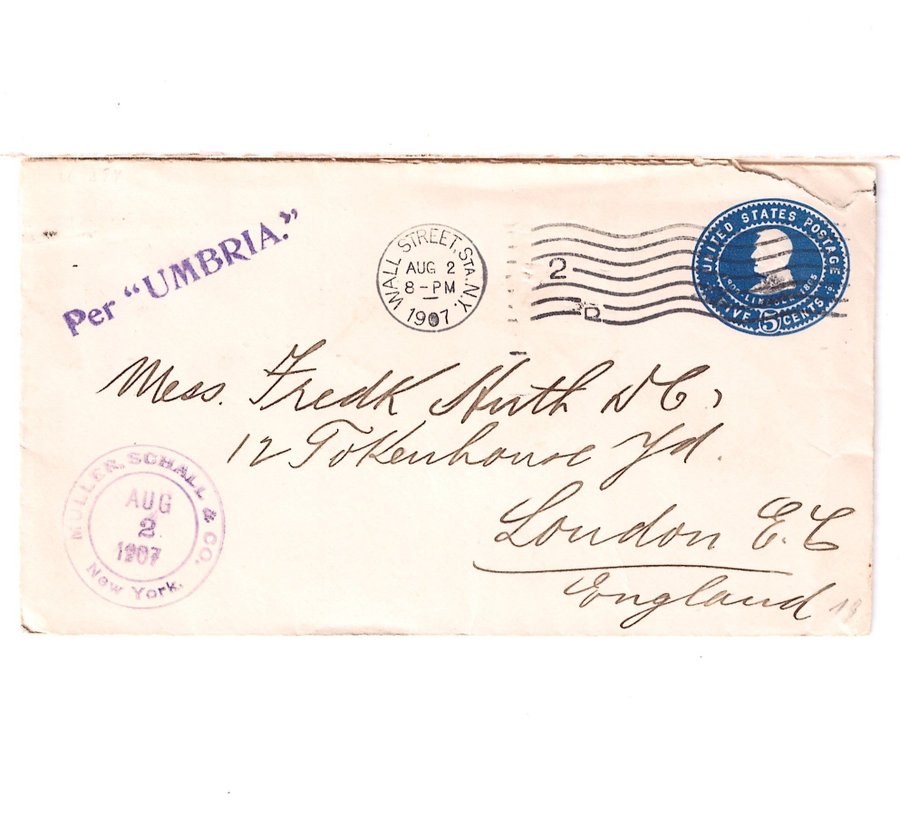 Per "UMBRIA."
WALL STREET, STA. N.Y.
AUG 2
8-PM
1907
2
UNITED STATES POSTAGE
LINCOLN 1865
FIVE 5 CENTS
Mess. Fredk Huth & C,
12 Tokenhouse Yd.
London E.C
England
MULLER, SCHALL & CO.
AUG
2
1907
New York.